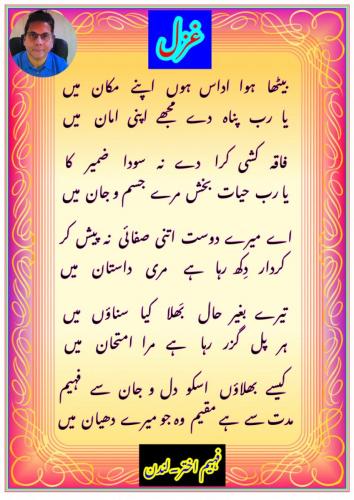 غزل
بیٹھا ہوا اداس ہوں اپنے مکان میں
یا رب پناہ دے مجھے اپنی امان میں
فاقہ کشی کرا دے نہ سودا ضمیر کا
یا رب حیات بخش مرے جسم و جان میں
اے میرے دوست اتنی صفائی نہ پیش کر
کردار دِکھ رہا ہے مری داستان میں
تیرے بغیر حال بَھلا کیا سناؤں میں
ہر پل گزر رہا ہے مرا امتحان میں
کیسے بھلاؤں اسکو دل و جان سے فہیم
مدت سے ہے مقیم وہ جو میرے دھیان میں
فہیم اختر۔لندن